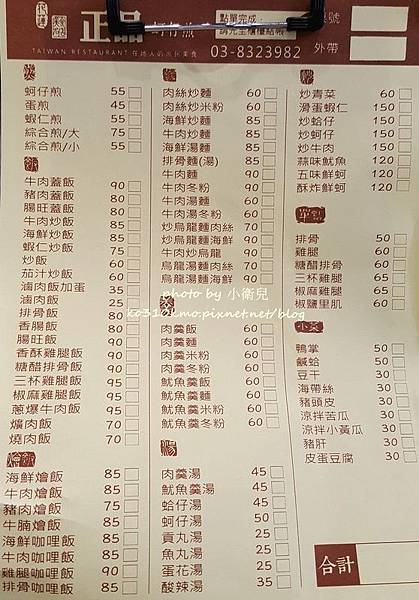 正品 蚵仔煎
TAIWAN RESTAURANT 在地人的古早美食
點單完成
請先至櫃檯結帳
03-8323982
桌號
外帶
煎
蚵仔煎 55
蛋煎 45
蝦仁煎 55
綜合煎/大 75
綜合煎/小 55
飯
牛肉蓋飯 90
豬肉蓋飯 80
腸旺蓋飯 80
牛肉炒飯 80
海鮮炒飯 80
蝦仁炒飯 75
炒飯 60
茄汁炒飯 60
滷肉飯加蛋 35
滷肉飯 25
排骨飯 80
香腸飯 80
腸旺飯 90
香酥雞腿飯 90
糖醋排骨飯 90
三杯雞腿飯 90
椒麻雞腿飯 90
蔥爆牛肉飯 90
爌肉飯 70
燒肉飯 70
燴飯
海鮮燴飯 85
牛肉燴飯 85
豬肉燴飯 75
牛腩燴飯 85
海鮮咖哩飯 85
牛肉咖哩飯 85
雞腿咖哩飯 90
排骨咖哩飯 85
麵
肉絲炒麵 60
肉絲炒米粉 60
海鮮炒麵 85
牛肉炒麵 85
排骨麵(湯) 85
牛肉麵 90
牛肉冬粉 90
牛肉湯麵 60
牛肉湯冬粉 60
炒烏龍麵肉絲 70
炒烏龍麵海鮮 90
牛肉炒烏龍 90
烏龍湯麵肉絲 70
烏龍湯麵海鮮 90
羹
肉羹飯 60
肉羹麵 60
肉羹米粉 60
肉羹冬粉 60
魷魚羹飯 60
魷魚羹麵 60
魷魚羹米粉 60
魷魚羹冬粉 60
湯
肉羹湯 45
魷魚羹湯 45
蛤仔湯 45
蚵仔湯 50
貢丸湯 25
魚丸湯 25
蛋花湯 25
酸辣湯 35
炒
炒青菜 60
滑蛋蝦仁 150
炒蛤仔 150
炒蚵仔 150
炒牛肉 150
蒜味魷魚 120
五味鮮蚵 120
酥炸鮮蚵 150
單點
排骨 50
雞腿 60
糖醋排骨 60
三杯雞腿 65
椒麻雞腿 65
椒鹽里肌 60
小菜
鴨掌 50
鹹蛤 50
豆干 30
海帶絲 30
豬頭皮 30
涼拌苦瓜 30
涼拌小黃瓜 30
豬肝 30
皮蛋豆腐 30
合計
photo by 小衛兒
ko310emo.pixnet.net/blog